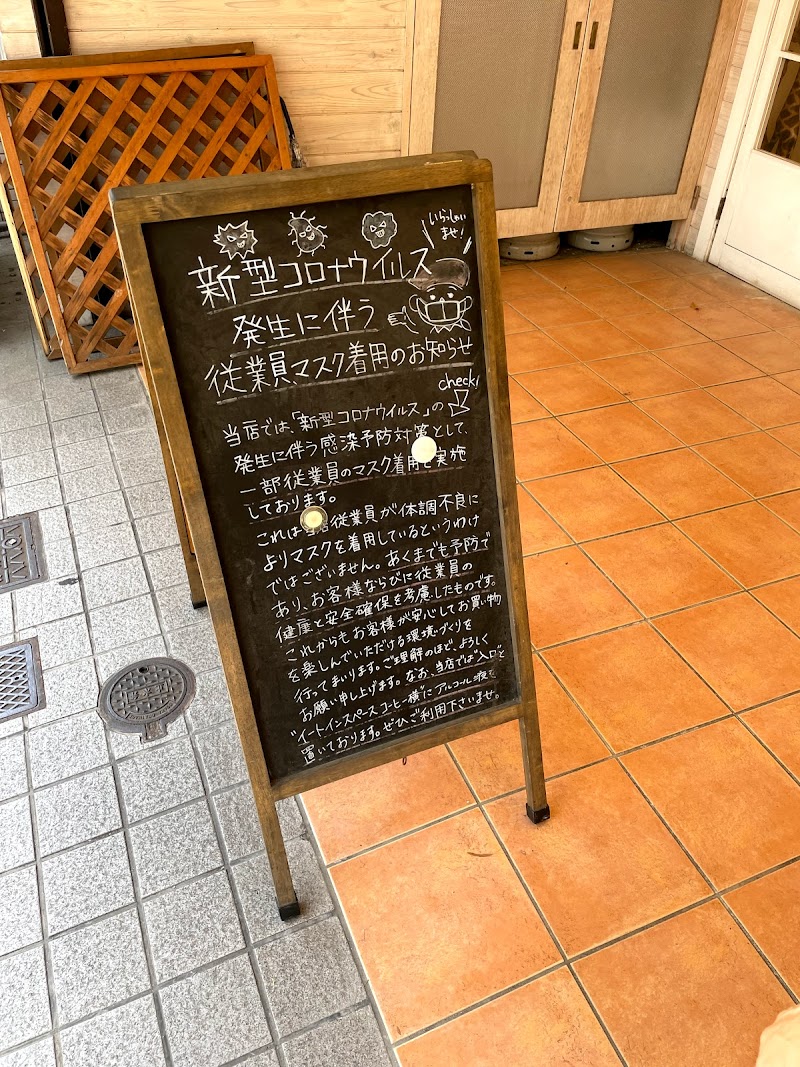 いらっしゃい
ませ!
新型コロナウイルス
発生に伴う
従業員マスク着用のお知らせ
check!
当店では、「新型コロナウイルス」の
発生に伴う感染予防対策として、
一部従業員のマスク着用を実施
しております。
これは当店従業員が体調不良に
よりマスクを着用しているというわけ
ではございません。あくまでも予防で
あり、お客様ならびに従業員の
健康と安全確保を考慮したものです。
これからもお客様が安心してお買い物
を楽しんでいただける環境づくりを
行ってまいります。ご理解のほど、よろしく
お願い申し上げます。なお、当店では"入口"と
"イートインスペースコーヒー横"にアルコール液を
置いております。ぜひご利用下さいませ。